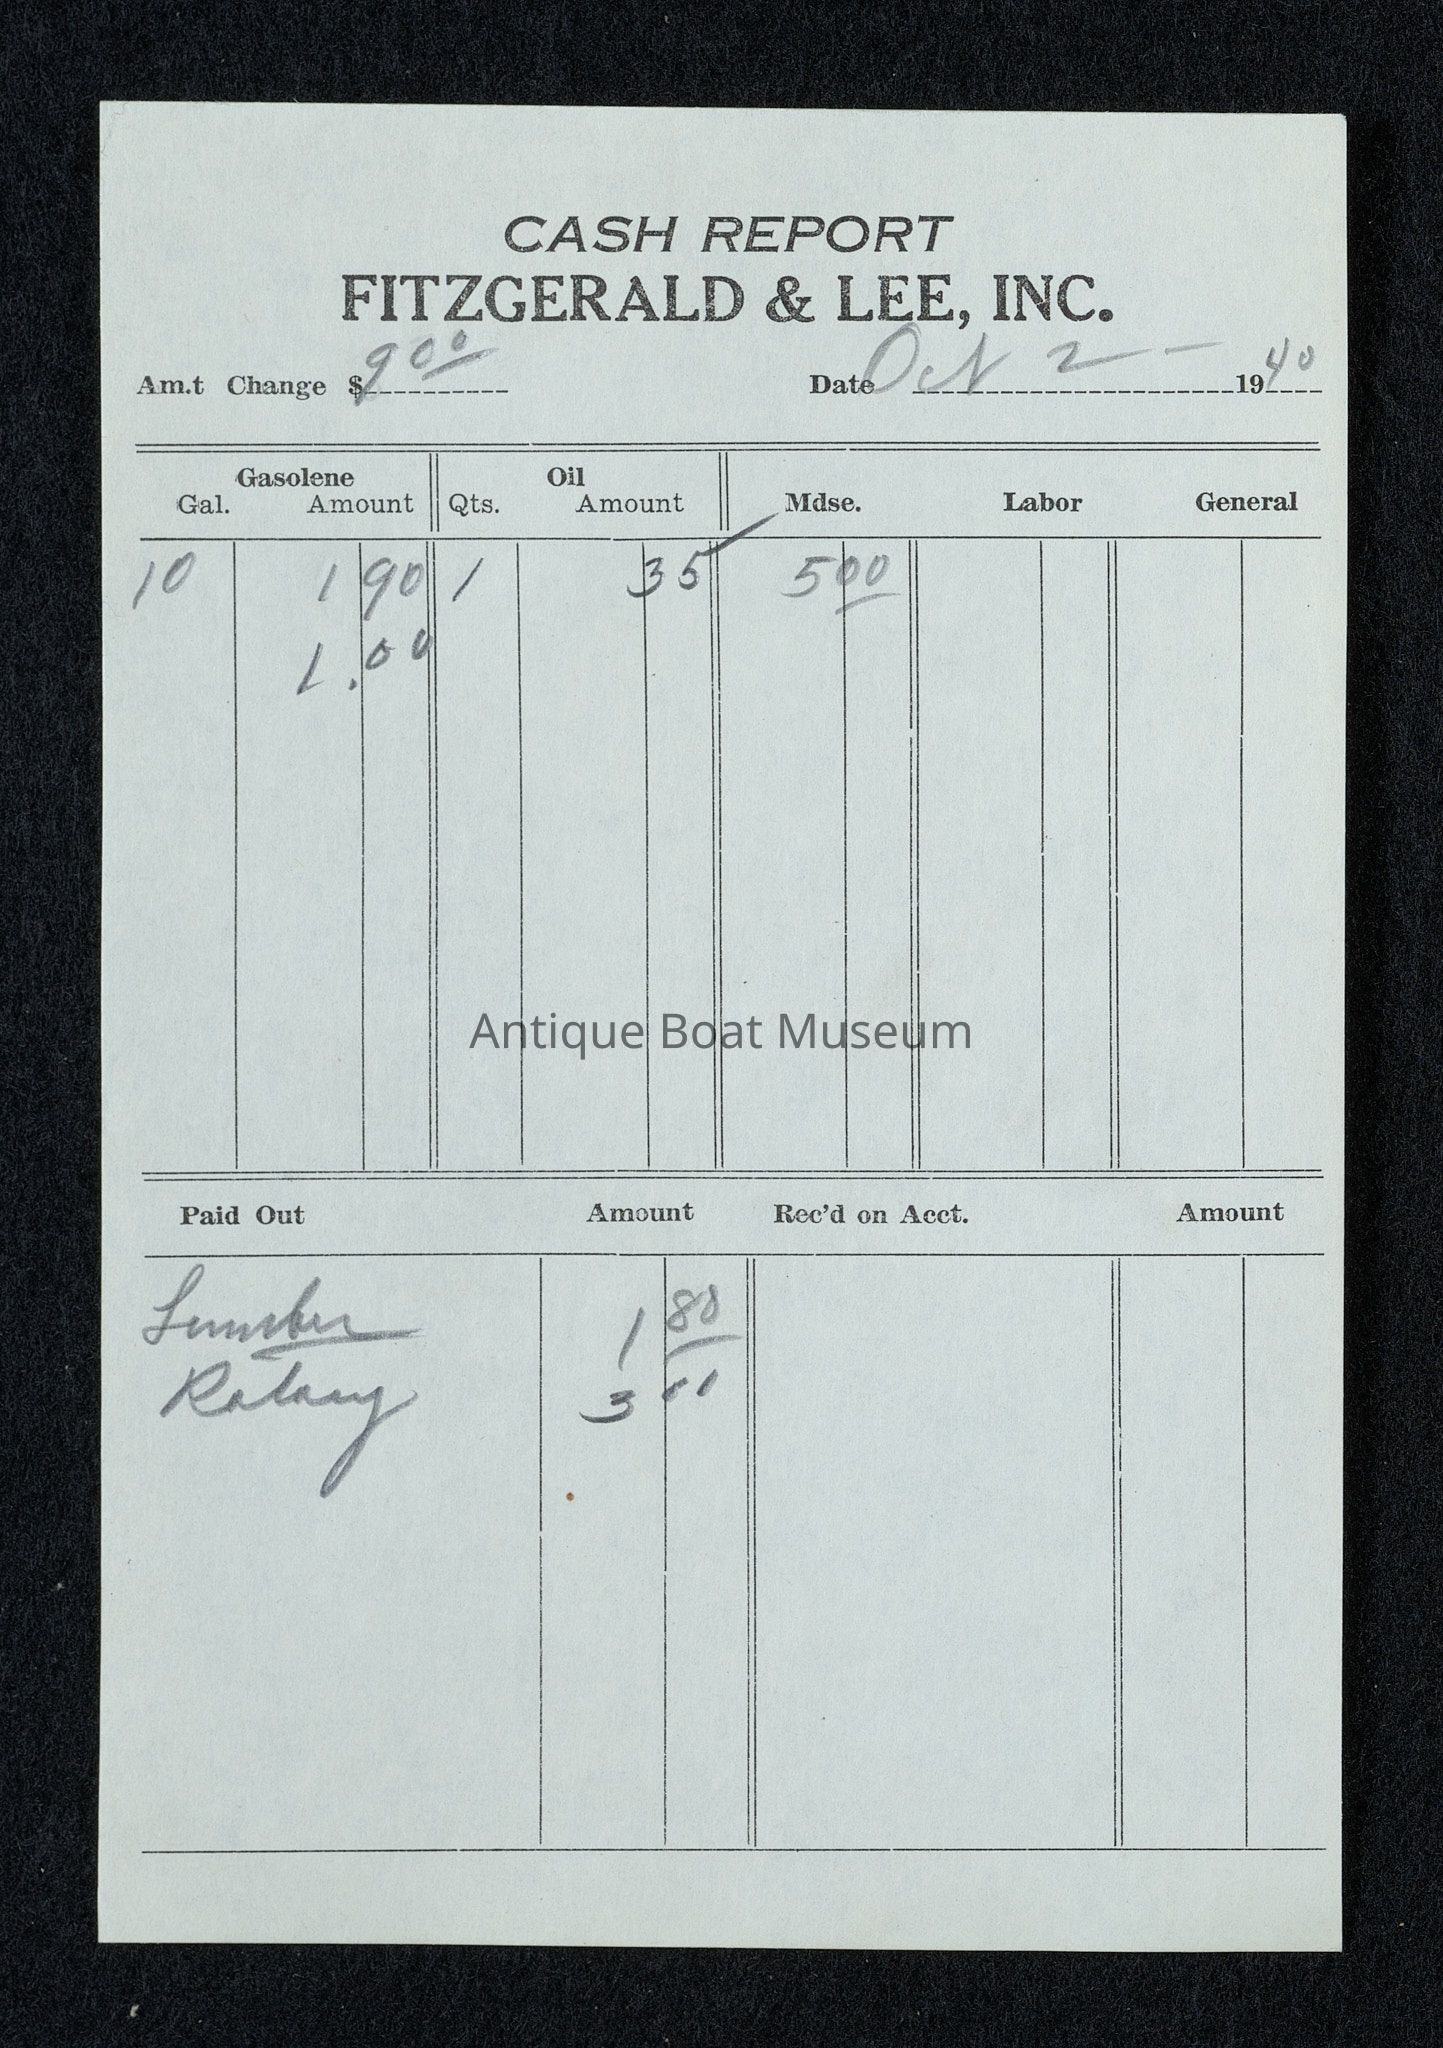 CASH REPORT
FITZGERALD & LEE, INC.
Am.t Change $ 9 00 Date Oct 2 — 19 40
Gasolene Oil
Gal. Amount Qts. Amount Mdse. Labor General
10 1 90 1 35 5 00
1.00
Antique Boat Museum
Paid Out Amount Rec'd on Acct. Amount
Lumber 1 80
Rotary 3